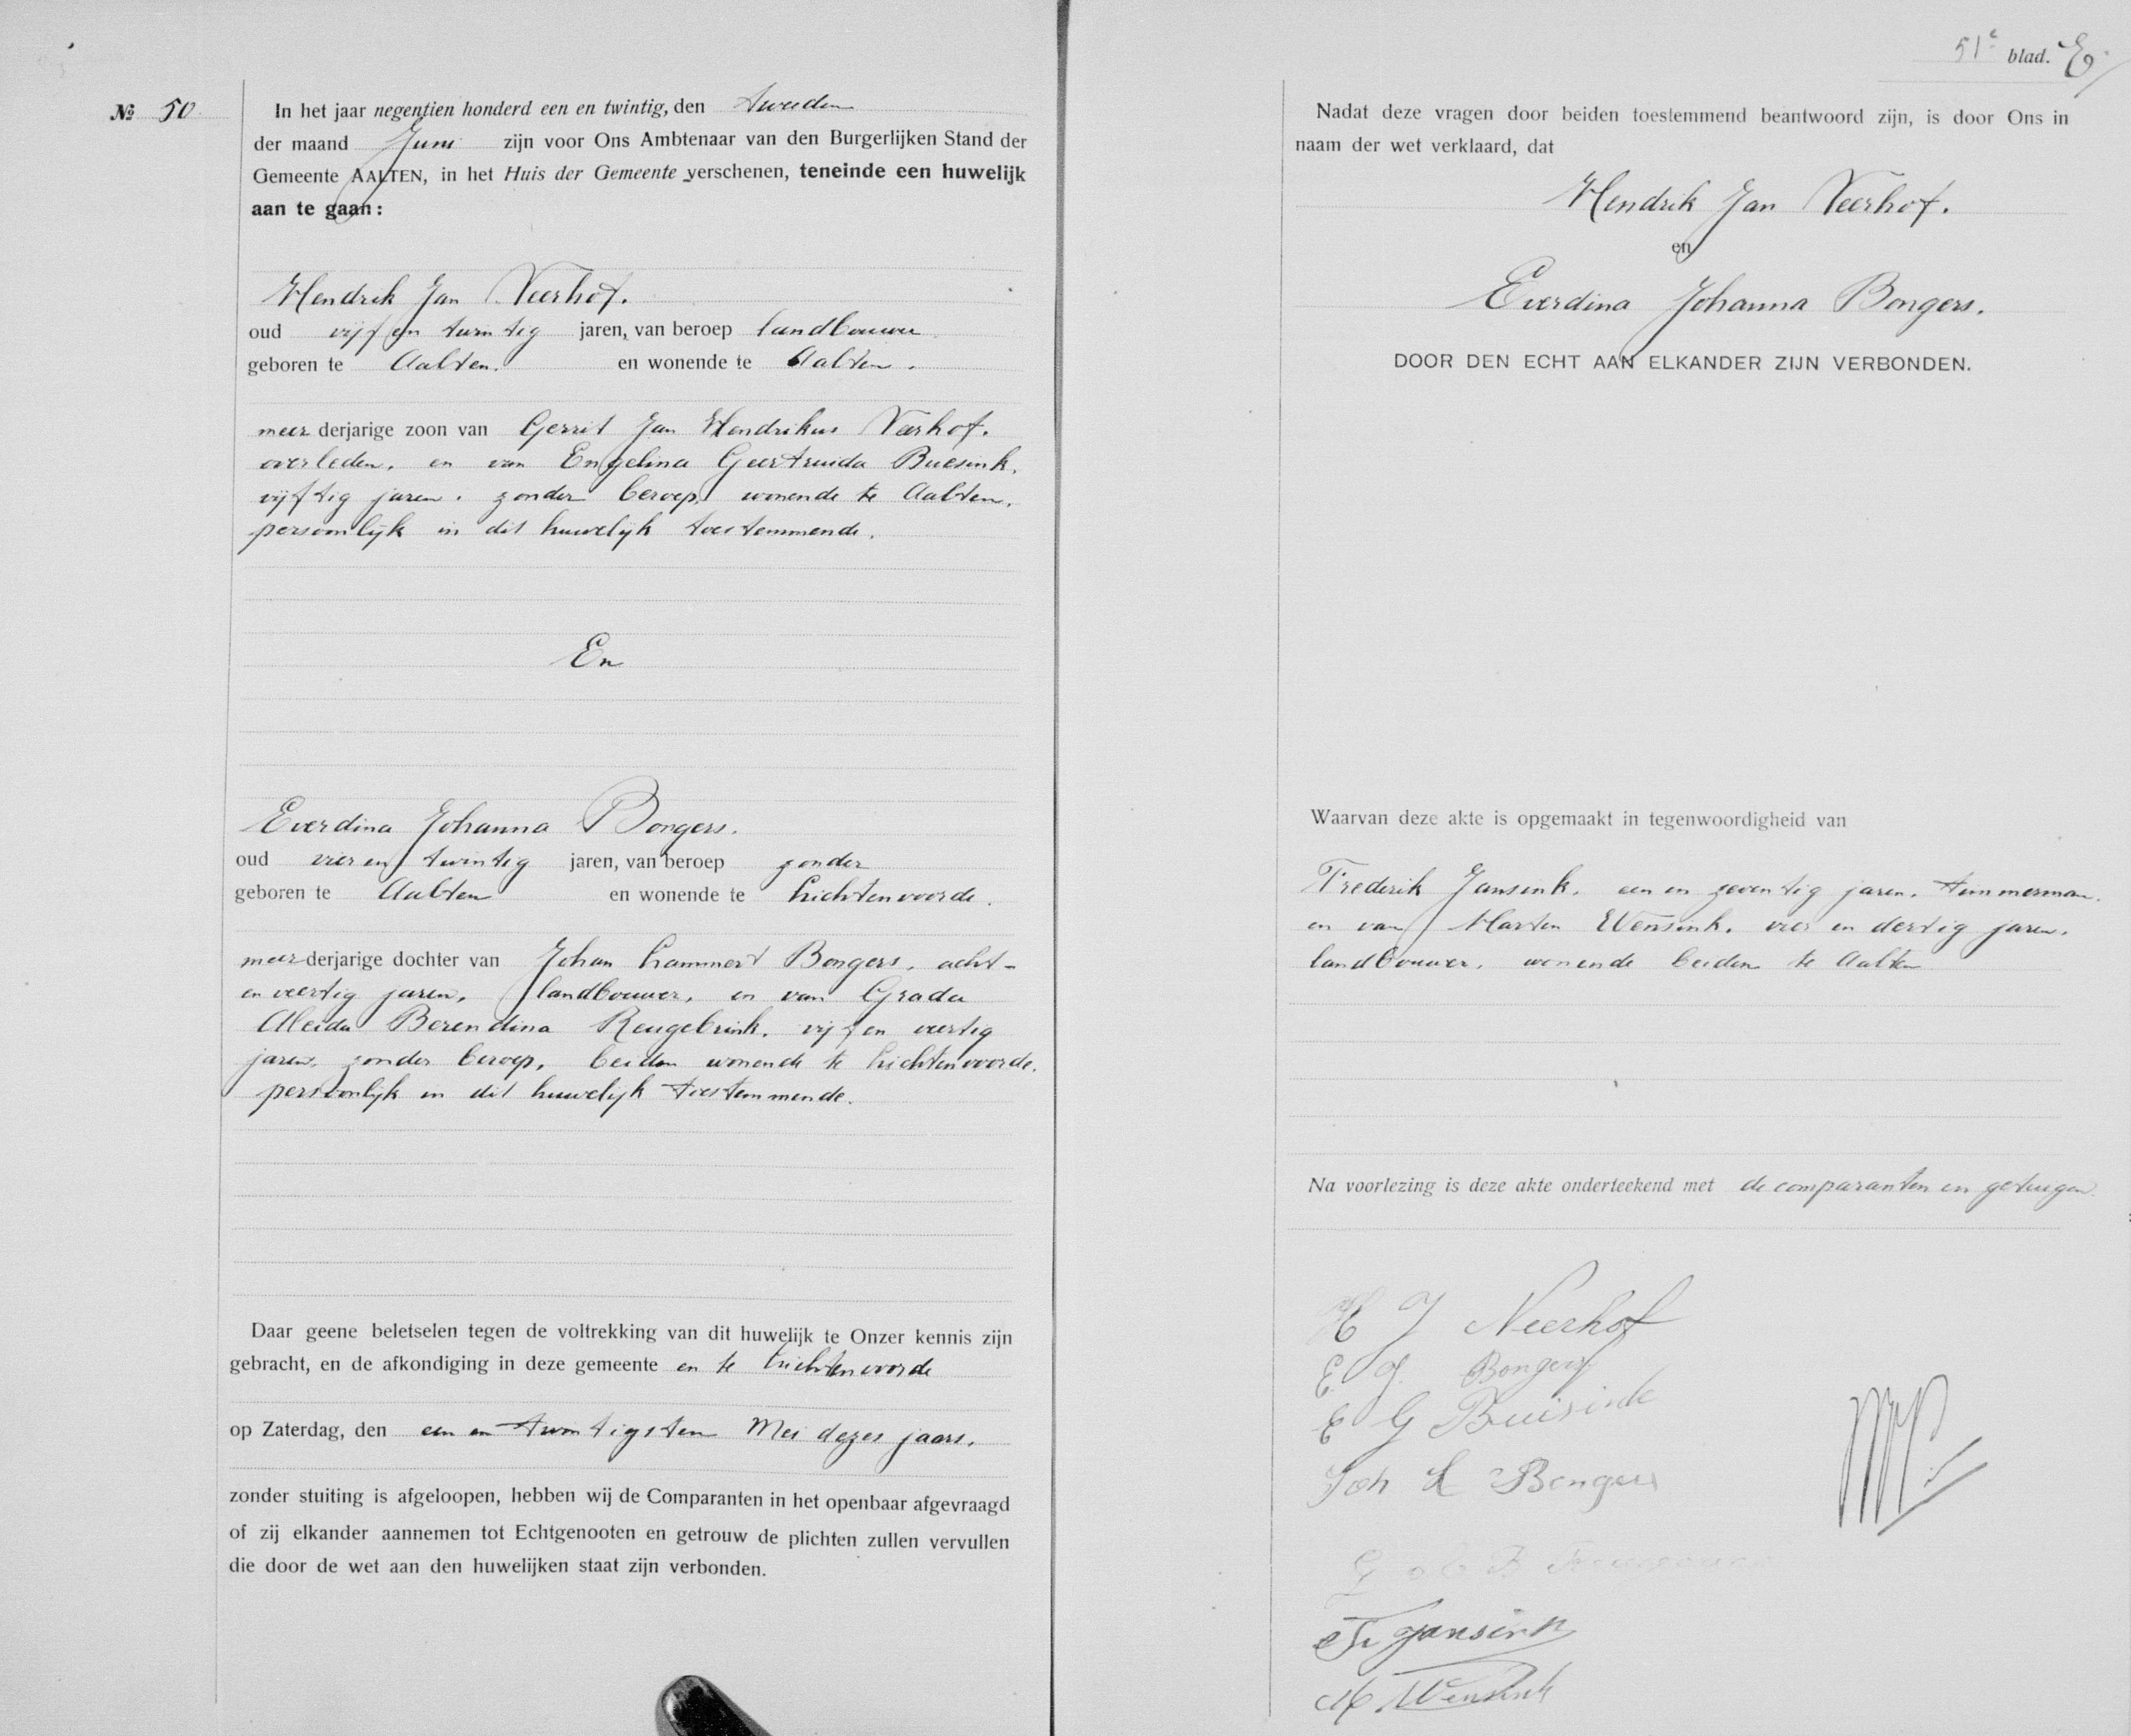 № 50
In het jaar negentien honderd een en twintig, den tweeden
der maand Juni zijn voor Ons Ambtenaar van den Burgerlijken Stand der
Gemeente AALTEN, in het Huis der Gemeente verschenen, teneinde een huwelijk
aan te gaan:
Hendrik Jan Neerhof.
oud vijf en twintig jaren, van beroep landbouwer
geboren te Aalten. en wonende te Aalten.
meerderjarige zoon van Gerrit Jan Hendrikus Neerhof.
overleden. en van Engelina Geertruida Buesink.
vijftig jaren. zonder beroep, wonende te Aalten.
persoonlijk in dit huwelijk toestemmende.
En
Everdina Johanna Bongers.
oud vier en twintig jaren, van beroep zonder
geboren te Aalten en wonende te Lichtenvoorde.
meerderjarige dochter van Johan Lammert Bongers, acht-
en veertig jaren, landbouwer, en van Grada
Aleida Berendina Rengebrink. vijf en veertig
jaren, zonder beroep, beiden wonende te Lichtenvoorde.
persoonlijk in dit huwelijk toestemmende.
Daar geene beletselen tegen de voltrekking van dit huwelijk te Onzer kennis zijn
gebracht, en de afkondiging in deze gemeente en te Lichtenvoorde
op Zaterdag, den een en twintigsten Mei dezes jaars.
zonder stuiting is afgeloopen, hebben wij de Comparanten in het openbaar afgevraagd
of zij elkander aannemen tot Echtgenooten en getrouw de plichten zullen vervullen
die door de wet aan den huwelijken staat zijn verbonden.
51e blad.
Nadat deze vragen door beiden toestemmend beantwoord zijn, is door Ons in
naam der wet verklaard, dat
Hendrik Jan Neerhof.
en
Everdina Johanna Bongers.
DOOR DEN ECHT AAN ELKANDER ZIJN VERBONDEN.
Waarvan deze akte is opgemaakt in tegenwoordigheid van
Frederik Jansink. een en zeventig jaren. timmerman.
en van Marten Wensink. vier en dertig jaren.
landbouwer, wonende beiden te Aalten
Na voorlezing is deze akte onderteekend met de comparanten en getuigen.
H J Neerhof
E. J. Bongers
E G Buisink
Joh L Bongers
G A B
Fr Jansink
M. Wensink